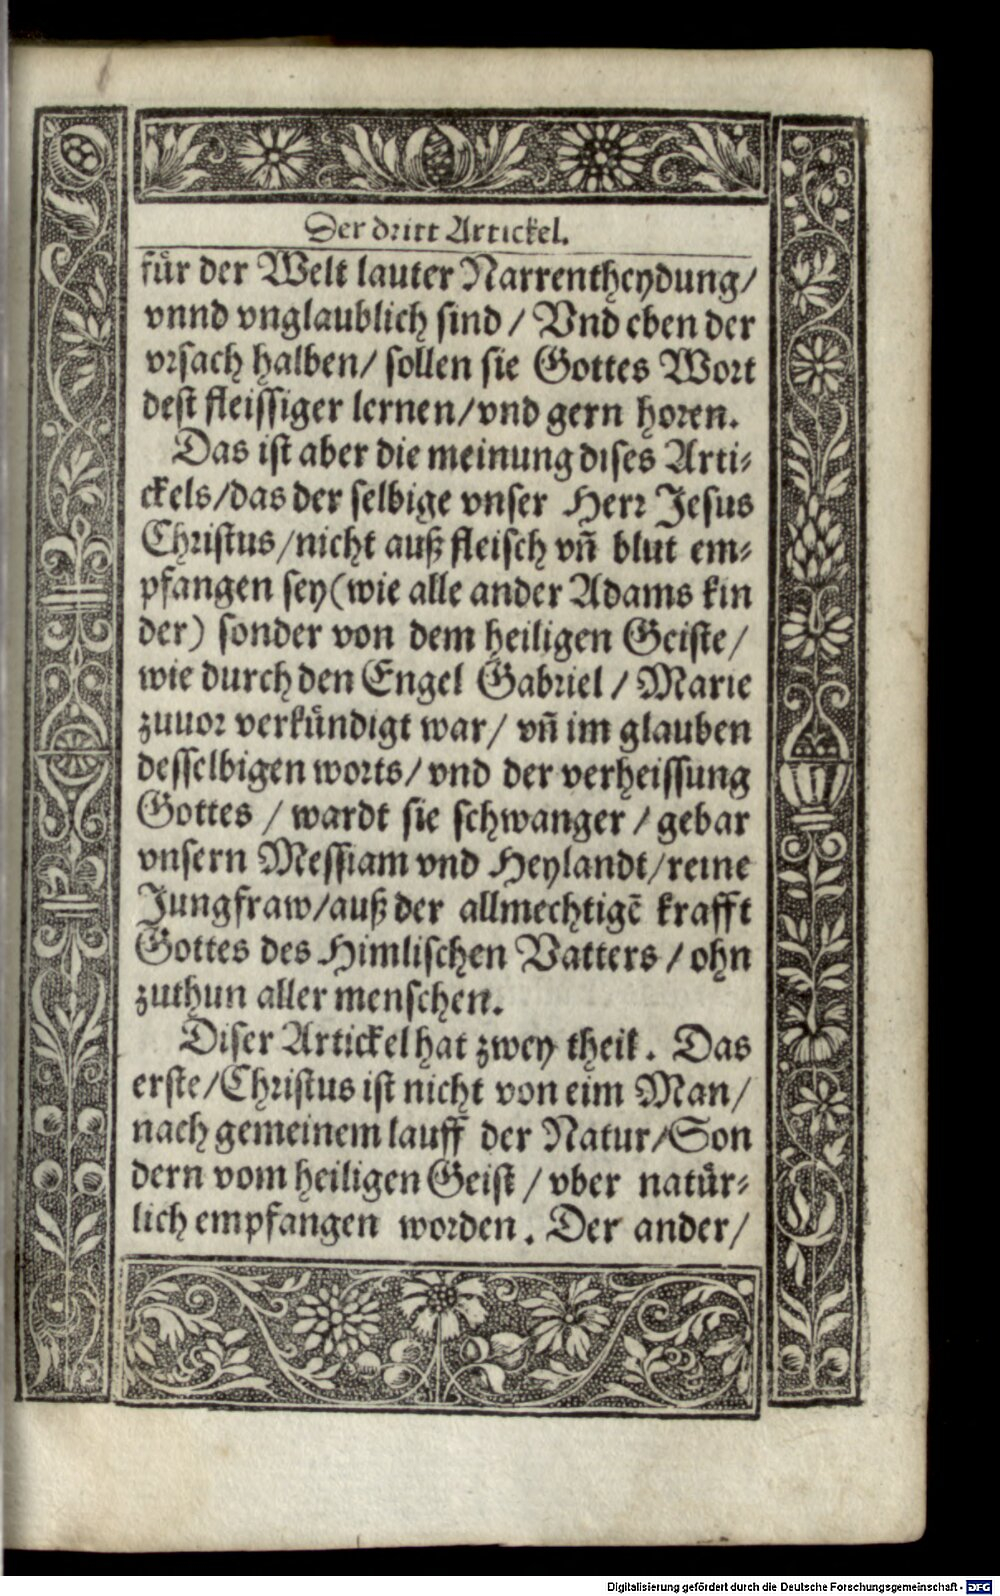 Der dritt Artickel.
für der Welt lauter Narrentheydung/
vnnd vnglaublich sind / Vnd eben der
vrsach halben/ sollen sie Gottes Wort
dest fleissiger lernen/vnd gern horen.
Das ist aber die meinung dises Arti⸗
ckels/das der selbige vnser Herr Jesus
Christus/nicht auß fleisch vñ blut em⸗
pfangen sey(wie alle ander Adams kin
der) sonder von dem heiligen Geiste/
wie durch den Engel Gabriel / Marie
zuuor verkündigt war/ vñ im glauben
desselbigen worts/vnd der verheissung
Gottes / wardt sie schwanger / gebar
vnsern Messiam vnd Heylandt/reine
Jungfraw/auß der allmechtigẽ krafft
Gottes des Himlischen Vatters / ohn
zuthun aller menschen.
Diser Artickel hat zwey theil. Das
erste/Christus ist nicht von eim Man/
nach gemeinem lauff der Natur/Son
dern vom heiligen Geist / vber natür⸗
lich empfangen worden. Der ander/
Digitalisierung gefördert durch die Deutsche Forschungsgemeinschaft - DFG